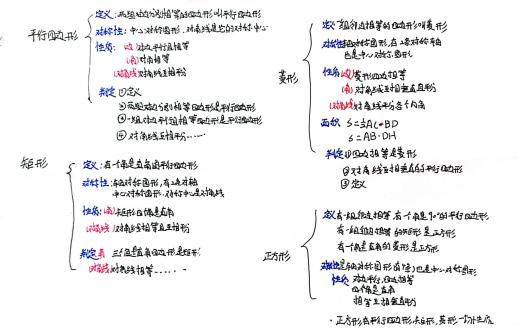 平行四边形
定义：两组对边分别相等的四边形叫平行四边形
对称性：中心对称图形，对角线是它的对称中心
性质：(边)对边平行且相等
(角)对角相等
(对角线)对角线互相平分
判定 ①定义
②两组对边分别相等四边形是平行四边形
③一组对边平行且相等四边形是平行四边形
④对角线互相平分……
矩形
定义：有一个角是直角的平行四边形
对称性：轴对称图形，有2条对称轴
中心对称图形，对称中心是对角线
性质：(角)矩形四个角是直角
(对角线)对角线相等且互相平分
判定 角 三个角是直角四边形是矩形
对角线 对角线相等……
菱形
定义：一组邻边相等的四边形叫菱形
对称性 轴对称图形，有2条对称轴
也是中心对称图形
性质(边)菱形四边相等
(角)对角线互相垂直平分
对角线 对角线平分每个内角
面积 S=½AC·BD
S=AB·DH
判定①四边相等是菱形
②对角线互相垂直的平行四边形
③定义
正方形
定义 有一组邻边相等，有一个角是90°的平行四边形
有一组邻边相等的矩形是正方形
有一个角是直角的菱形是正方形
对称性 是轴对称图形(4条)也是中心对称图形
性质 对边平行，四边相等
四个角是直角
相等互相垂直平分
·正方形有平行四边形，矩形，菱形一切性质